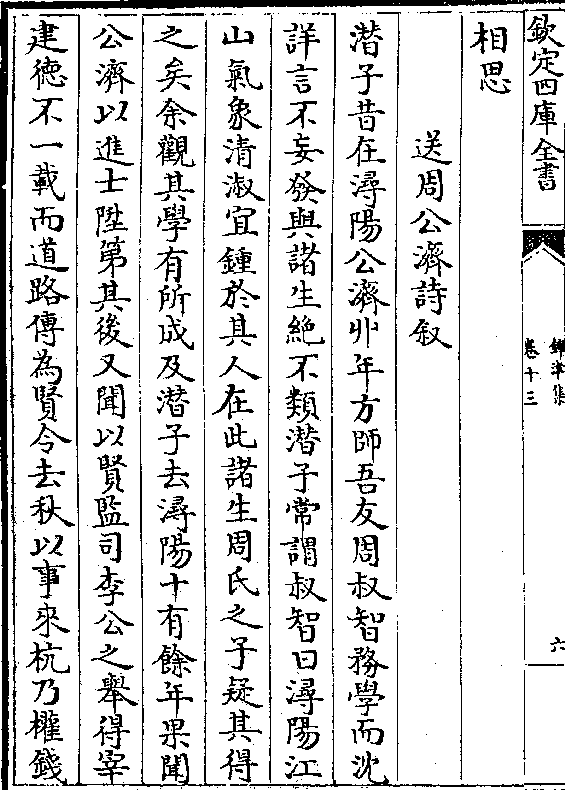 欽定四庫全書
鐔津集
卷十三
六
相思
送周公濟詩叙
潜子昔在潯陽公濟丱年方師吾友周叔智務學而沈
詳言不妄發與諸生絶不類潜子常謂叔智曰潯陽江
山氣象清淑宜鍾於其人在此諸生周氏之子疑其得
之矣余觀其學有所成及潜子去潯陽十有餘年果聞
公濟以進士陞第其後又聞以賢監司李公之舉得宰
建德不一載而道路傳為賢令去秋以事來杭乃櫂錢